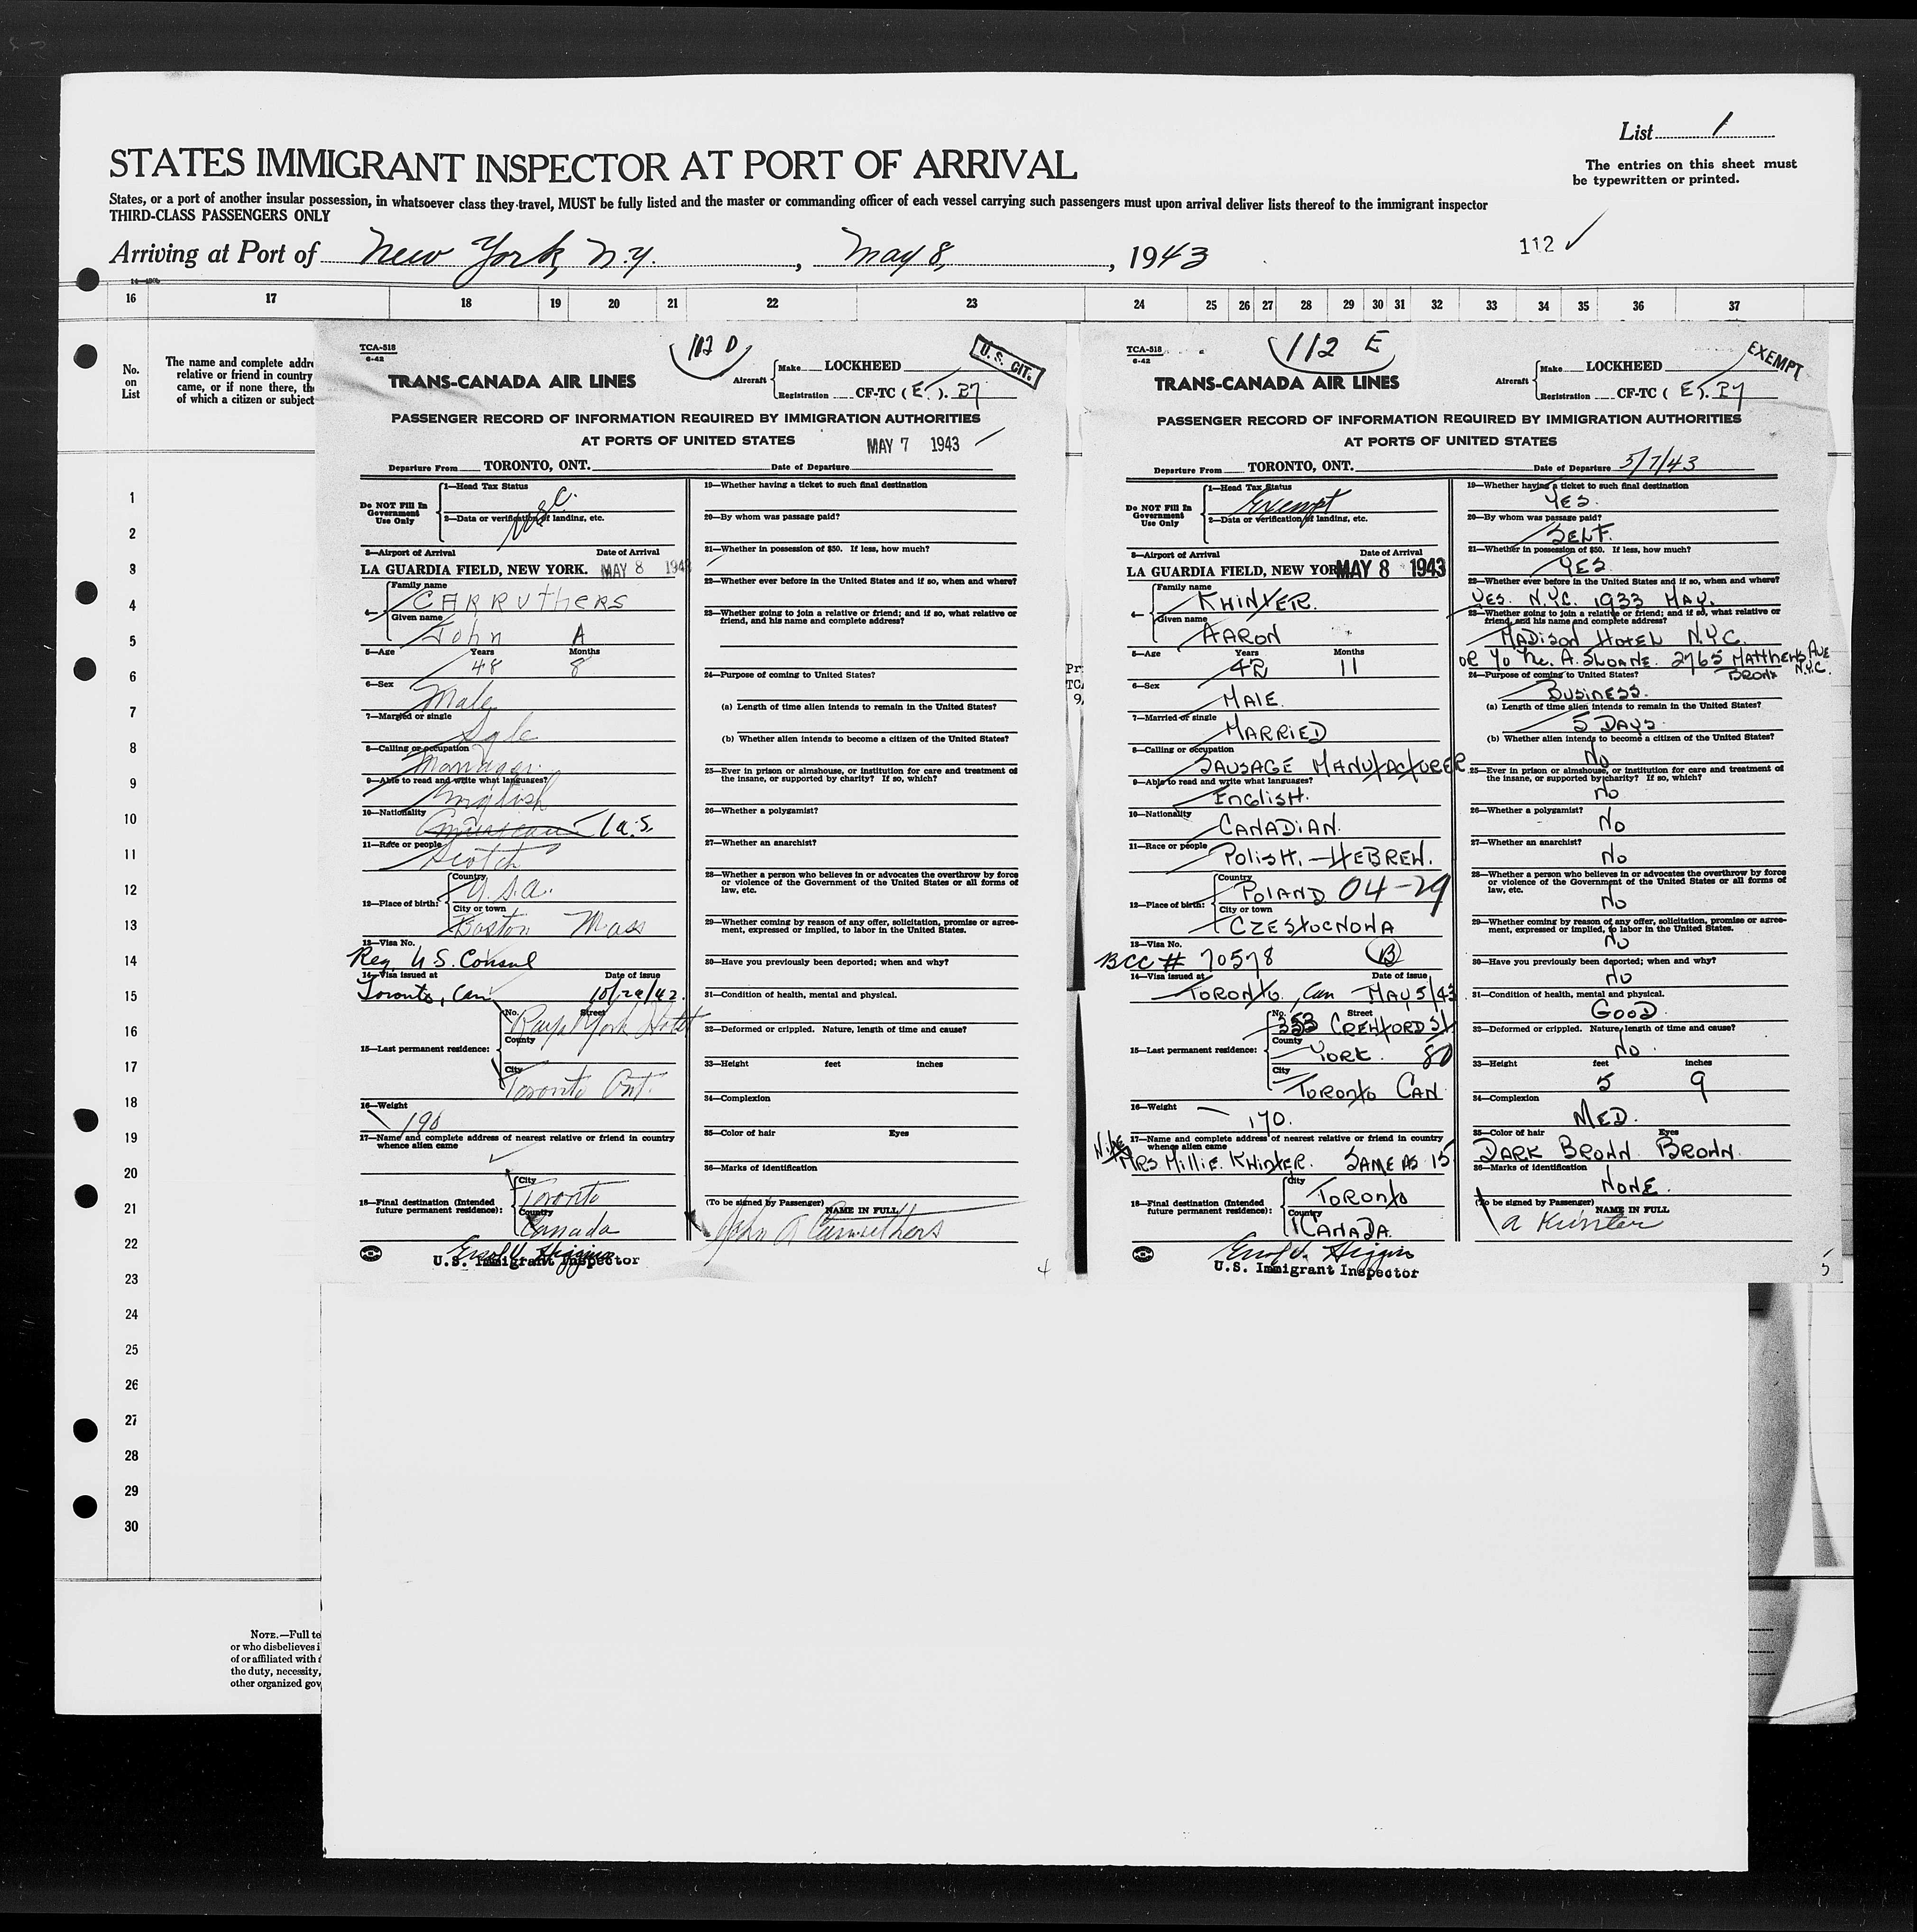 List 1
STATES IMMIGRANT INSPECTOR AT PORT OF ARRIVAL
The entries on this sheet must
be typewritten or printed.
States, or a port of another insular possession, in whatsoever class they travel, MUST be fully listed and the master or commanding officer of each vessel carrying such passengers must upon arrival deliver lists thereof to the immigrant inspector
THIRD-CLASS PASSENGERS ONLY
Arriving at Port of New York, N.Y. , May 8, , 1943
112 ✓
16 17 18 19 20 21 22 23 24 25 26 27 28 29 30 31 32 33 34 35 36 37
No.
on
List
The name and complete addre
relative or friend in country
came, or if none there, the
of which a citizen or subject
1
2
3
4
5
6
7
8
9
10
11
12
13
14
15
16
17
18
19
20
21
22
23
24
25
26
27
28
29
30
NOTE.—Full te
or who disbelieves i
of or affiliated with
the duty, necessity,
other organized gov
TCA-518
6-42
112 D
U. S. CIT.
TRANS-CANADA AIR LINES
Aircraft
Make LOCKHEED
Registration CF-TC (E). B7
PASSENGER RECORD OF INFORMATION REQUIRED BY IMMIGRATION AUTHORITIES
AT PORTS OF UNITED STATES
MAY 7 1943
Departure From TORONTO, ONT. Date of Departure
Do NOT Fill In
Government
Use Only
1—Head Tax Status
USC
2—Data or verification of landing, etc.
3—Airport of Arrival Date of Arrival
LA GUARDIA FIELD, NEW YORK. MAY 8 1943
4— Family name
CARRUTHERS
Given name
John A
5—Age Years Months
48 8
6—Sex
Male
7—Married or single
Sgle
8—Calling or occupation
Manager.
9—Able to read and write what languages?
English
10—Nationality
American U.S.
11—Race or people
Scotch
12—Place of birth:
Country
U.S.A.
City or town
Boston Mass
13—Visa No.
Reg U.S. Consul
14—Visa issued at Date of issue
Toronto, Can 10/29/42.
15—Last permanent residence:
No. Street
Royal York Hotel
County
City
Toronto Ont.
16—Weight
190
17—Name and complete address of nearest relative or friend in country
whence alien came
18—Final destination (Intended
future permanent residence):
City
Toronto
Country
Canada
U.S. Immigrant Inspector
19—Whether having a ticket to such final destination
20—By whom was passage paid?
21—Whether in possession of $50. If less, how much?
22—Whether ever before in the United States and if so, when and where?
23—Whether going to join a relative or friend; and if so, what relative or
friend, and his name and complete address?
24—Purpose of coming to United States?
(a) Length of time alien intends to remain in the United States?
(b) Whether alien intends to become a citizen of the United States?
25—Ever in prison or almshouse, or institution for care and treatment of
the insane, or supported by charity? If so, which?
26—Whether a polygamist?
27—Whether an anarchist?
28—Whether a person who believes in or advocates the overthrow by force
or violence of the Government of the United States or all forms of
law, etc.
29—Whether coming by reason of any offer, solicitation, promise or agree-
ment, expressed or implied, to labor in the United States.
30—Have you previously been deported; when and why?
31—Condition of health, mental and physical.
32—Deformed or crippled. Nature, length of time and cause?
33—Height feet inches
34—Complexion
35—Color of hair Eyes
36—Marks of identification
(To be signed by Passenger) NAME IN FULL
John A Carruthers
4
Pr
TCA
9/
TCA-518
6-42
112 E
EXEMPT
TRANS-CANADA AIR LINES
Aircraft
Make LOCKHEED
Registration CF-TC (E). B7
PASSENGER RECORD OF INFORMATION REQUIRED BY IMMIGRATION AUTHORITIES
AT PORTS OF UNITED STATES
Departure From TORONTO, ONT. Date of Departure 5/7/43
Do NOT Fill In
Government
Use Only
1—Head Tax Status
Exempt
2—Data or verification of landing, etc.
3—Airport of Arrival Date of Arrival
LA GUARDIA FIELD, NEW YORK MAY 8 1943
4— Family name
KWINTER.
Given name
AARON
5—Age Years Months
42 11
6—Sex
MALE.
7—Married or single
MARRIED
8—Calling or occupation
SAUSAGE MANUFACTURER
9—Able to read and write what languages?
ENGLISH.
10—Nationality
CANADIAN.
11—Race or people
POLISH.—HEBREW.
12—Place of birth:
Country
POLAND 04-29
City or town
CZESTOCHOWA
13—Visa No.
BCC # 70578 B
14—Visa issued at Date of issue
TORONTO, Can MAY 5/43
15—Last permanent residence:
No. Street
353 CRAWFORD ST
County
YORK. 80
City
TORONTO CAN
16—Weight
170.
17—Name and complete address of nearest relative or friend in country
whence alien came
Wife
MRS MILLIE KWINTER. SAME AS 15
18—Final destination (Intended
future permanent residence):
City
TORONTO
Country
CANADA.
U.S. Immigrant Inspector
19—Whether having a ticket to such final destination
YES.
20—By whom was passage paid?
SELF.
21—Whether in possession of $50. If less, how much?
YES
22—Whether ever before in the United States and if so, when and where?
YES. N.Y.C. 1933 MAY.
23—Whether going to join a relative or friend; and if so, what relative or
friend, and his name and complete address?
MADISON HOTEL N.Y.C.
OR C/O MR. A. SLOANE. 2765 MATTHEWS AVE
BRONX N.Y.C.
24—Purpose of coming to United States?
BUSINESS.
(a) Length of time alien intends to remain in the United States?
5 DAYS.
(b) Whether alien intends to become a citizen of the United States?
NO
25—Ever in prison or almshouse, or institution for care and treatment of
the insane, or supported by charity? If so, which?
NO
26—Whether a polygamist?
NO
27—Whether an anarchist?
NO
28—Whether a person who believes in or advocates the overthrow by force
or violence of the Government of the United States or all forms of
law, etc.
NO
29—Whether coming by reason of any offer, solicitation, promise or agree-
ment, expressed or implied, to labor in the United States.
NO
30—Have you previously been deported; when and why?
NO
31—Condition of health, mental and physical.
GOOD.
32—Deformed or crippled. Nature, length of time and cause?
NO.
33—Height feet inches
5 9
34—Complexion
MED.
35—Color of hair Eyes
DARK BROWN BROWN.
36—Marks of identification
NONE.
(To be signed by Passenger) NAME IN FULL
A Kwinter
5